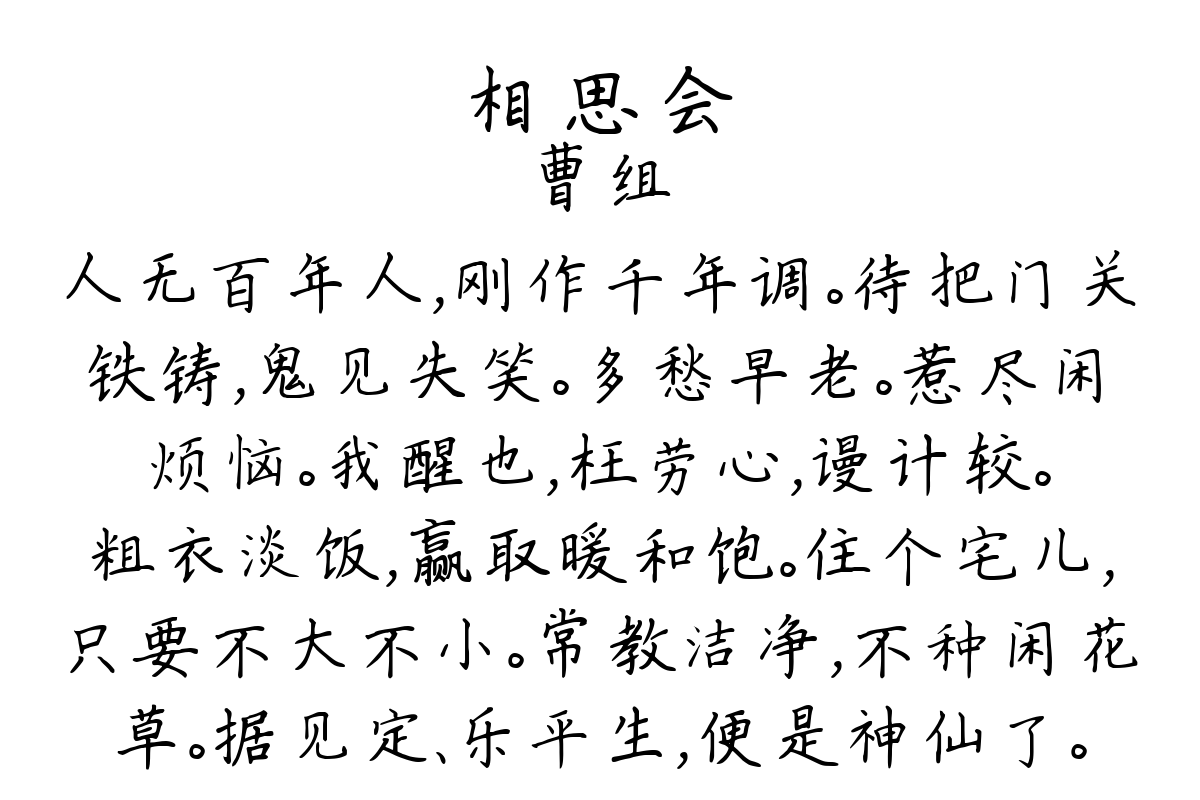 相思会
曹组
人无百年人,刚作千年调。待把门关
铁铸,鬼见失笑。多愁早老。惹尽闲
烦恼。我醒也,枉劳心,谩计较。
粗衣淡饭,赢取暖和饱。住个宅儿,
只要不大不小。常教洁净,不种闲花
草。据见定、乐平生,便是神仙了。